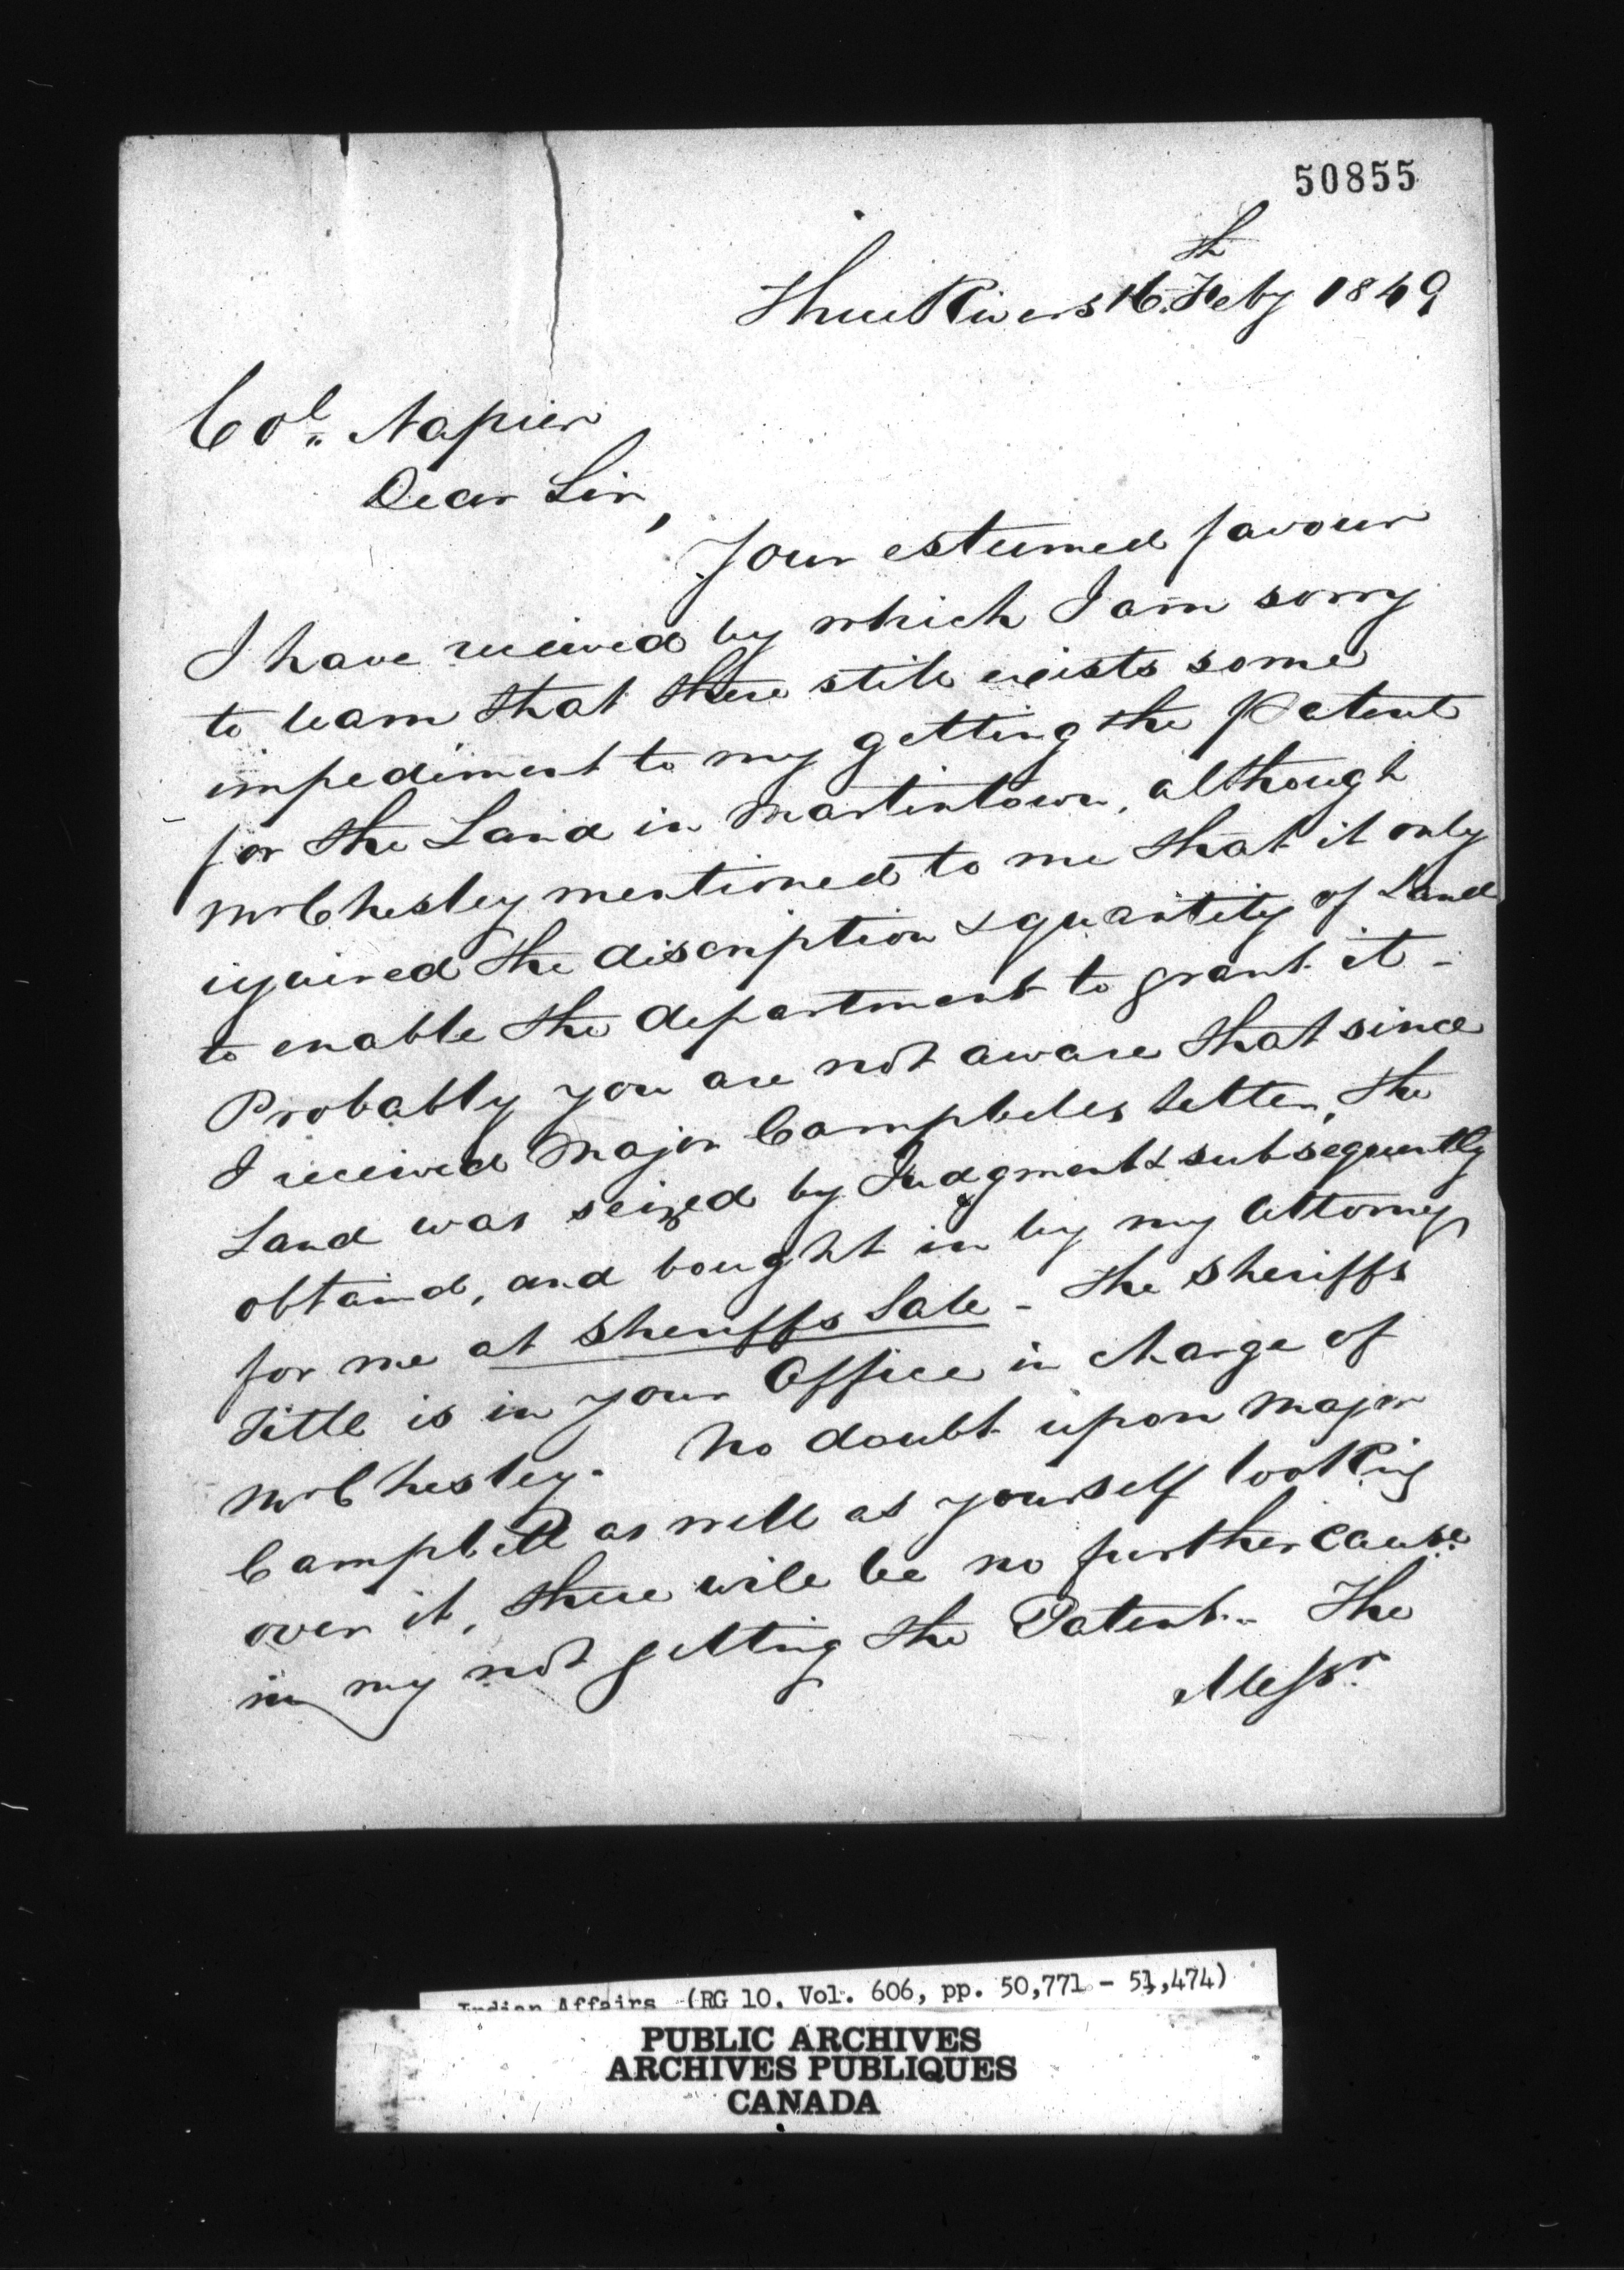 50855
Three Rivers 16th Feby 1849
Col. Napier
Dear Sir,
Your esteemed favour
I have received by which I am sorry
to learn that there still exists some
impediment to my getting the Patent
for the Land in Martintown, although
Mr Chesley mentioned to me that it only
iquired the discription & quantity of Land
to enable the department to grant it -
Probably you are not aware that since
I received Major Campbells letter, the
Land was seized by Judgment & subsequently
obtaind, and bought in by my Attorney
for me at Sheriffs Sale - The Sheriffs
Title is in your Office in charge of
Mr Chesley. No doubt upon Major
Campbell as well as yourself looking
over it, there will be no further cause
in my not getting the Patent. - The
Messrs.
Indian Affairs (RG 10, Vol. 606, pp. 50,771 - 51,474)
PUBLIC ARCHIVES
ARCHIVES PUBLIQUES
CANADA